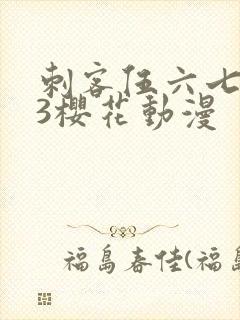 刺客伍六七
3櫻花動漫
福島春佳(福島